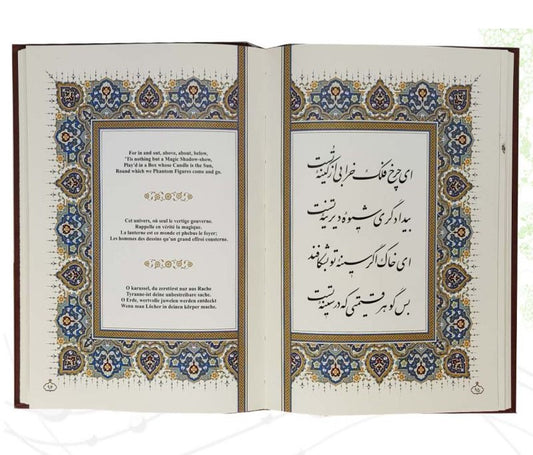 For in and out, above, about, below,
'Tis nothing but a Magic Shadow-show,
Play'd in a Box whose Candle is the Sun,
Round which we Phantom Figures come and go.
Cet univers, où seul le vertige gouverne.
Rappelle en vérité la magique.
La lanterne est ce monde et phebus le foyer;
Les hommes des dessins qu'un grand effroi consterne.
O karussel, du zerstörst nur aus Rache
Tyranne-ist deine unbestreibare sache.
O Erde, wertvolle juwelen werden entdeckt
Wenn man Löcher in deinen körper mache.
ای چرخ فلک خرابی از کینه تست
بیدادگری شیوه دیرینه تست
ای خاک اگر سینه تو بشکافند
بس گوهر قیمتی که در سینه تست